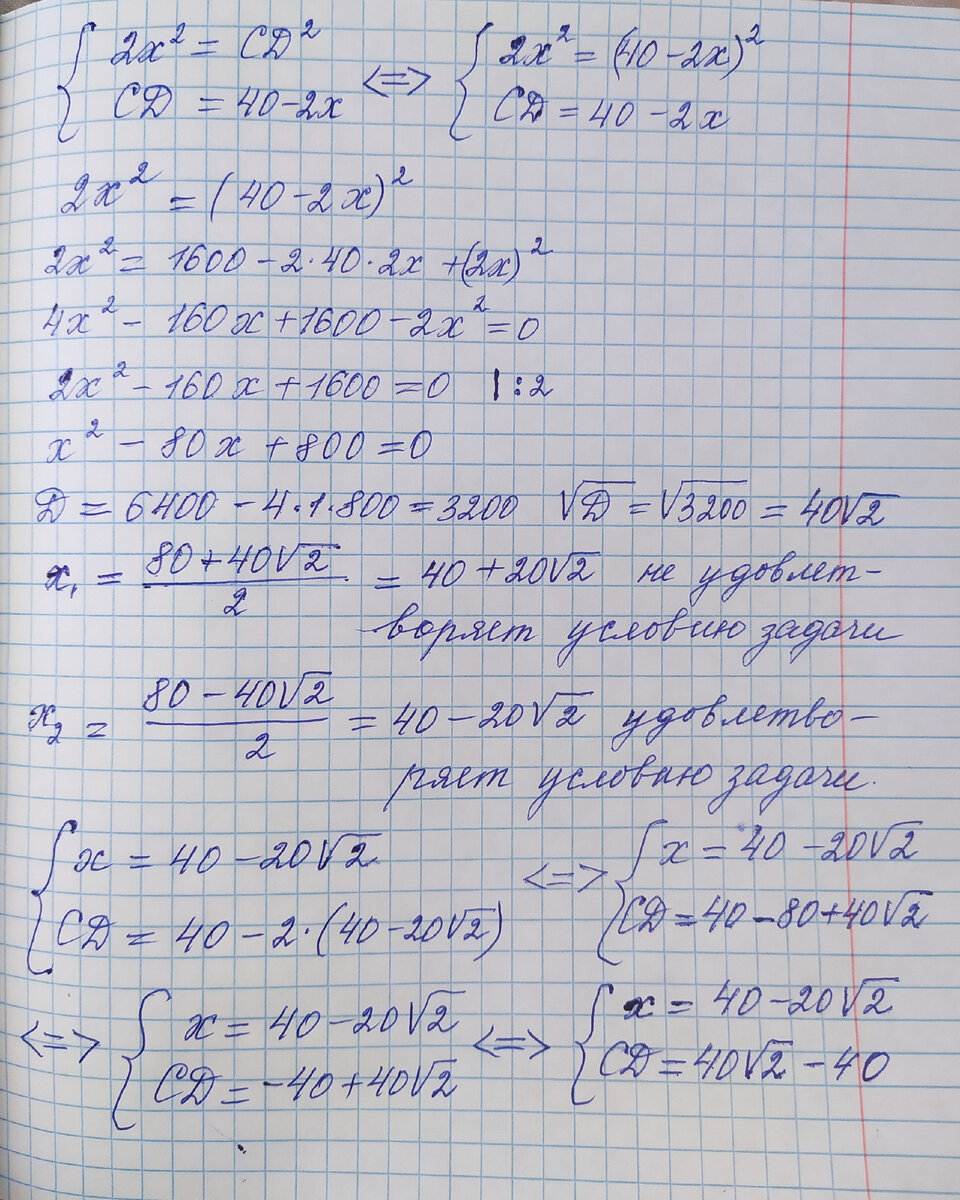 { 2x² = CD² <=> { 2x² = (40-2x)²
{ CD = 40-2x { CD = 40-2x
2x² = (40-2x)²
2x² = 1600-2·40·2x+(2x)²
4x² - 160x+1600-2x² = 0
2x² - 160x + 1600 = 0 |:2
x² - 80x + 800 = 0
D = 6400 - 4·1·800 = 3200 √D = √3200 = 40√2
x₁ = (80+40√2)/2 = 40+20√2 не удовлет-
воряет условию задачи
x₂ = (80-40√2)/2 = 40-20√2 удовлетво-
ряет условию задачи.
{ x = 40-20√2 <=> { x = 40-20√2
{ CD = 40-2·(40-20√2) { CD = 40-80+40√2
<=> { x = 40-20√2 <=> { x = 40-20√2
{ CD = -40+40√2 { CD = 40√2-40